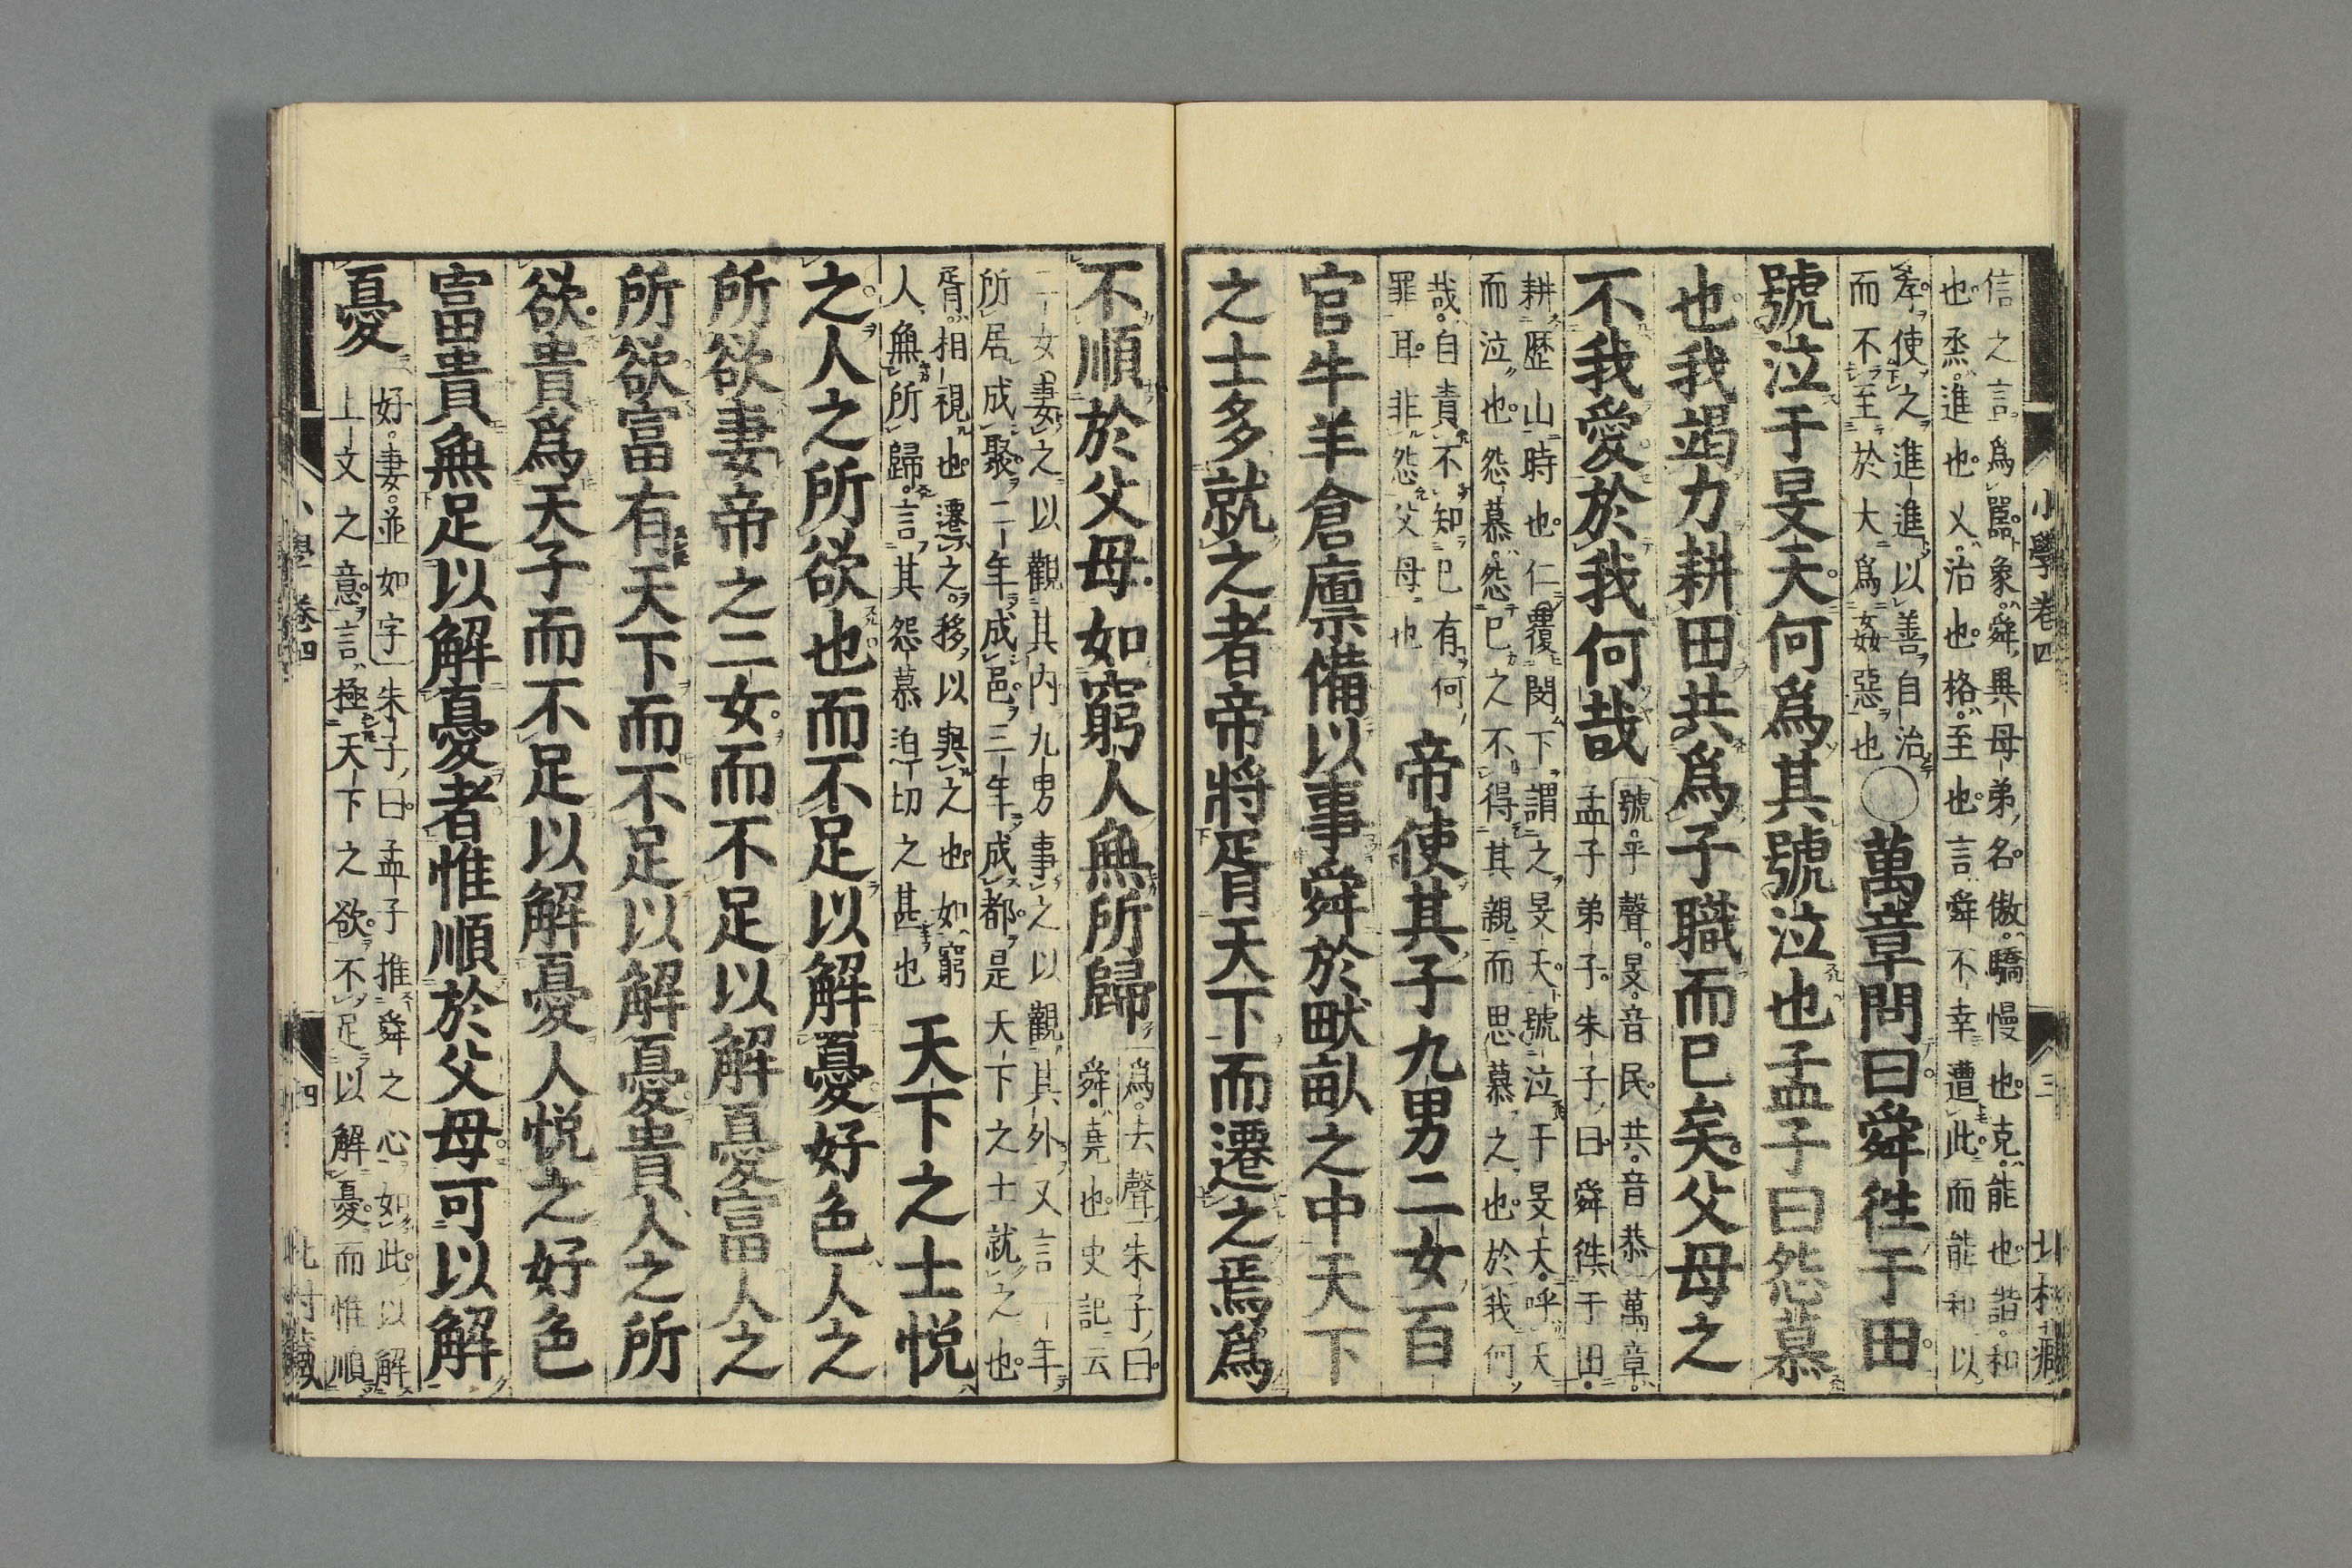 小學卷四 三 北村藏
信之言爲嚚象舜異母弟名傲驕慢也克能也諧和
也烝進也乂治也格至也言舜不幸遭此而能和以
孝使之進進以善自治
而不至於大爲姦惡也
○萬章問曰舜徃于田
號泣于旻天何爲其號泣也孟子曰怨慕
也我竭力耕田共爲子職而已矣父母之
不我愛於我何哉
號平聲旻音民共音恭 萬章
孟子弟子朱子曰舜徃于田
耕歷山時也仁覆閔下謂之旻天號泣于旻天呼天
而泣也怨慕怨已之不得其親而思慕之也於我何
哉自責不知已有何
罪耳非怨父母也
帝使其子九男二女百
官牛羊倉廩備以事舜於畎畝之中天下
之士多就之者帝將胥天下而遷之焉爲
不順於父母如窮人無所歸
爲去聲 朱子曰
舜堯也史記云
二女妻之以觀其内九男事之以觀其外又言一年
所居成聚二年成邑三年成都是天下之士就之也
胥相視也遷之移以與之也如窮
人無所歸言其怨慕迫切之甚也
天下之士悅
之人之所欲也而不足以解憂好色人之
所欲妻帝之二女而不足以解憂富人之
所欲富有天下而不足以解憂貴人之所
欲貴爲天子而不足以解憂人悅之好色
富貴無足以解憂者惟順於父母可以解
憂
好妻並如字 朱子曰孟子推舜之心如此以解
上文之意言極天下之欲不足以解憂而惟順
小學卷四 四 北村藏